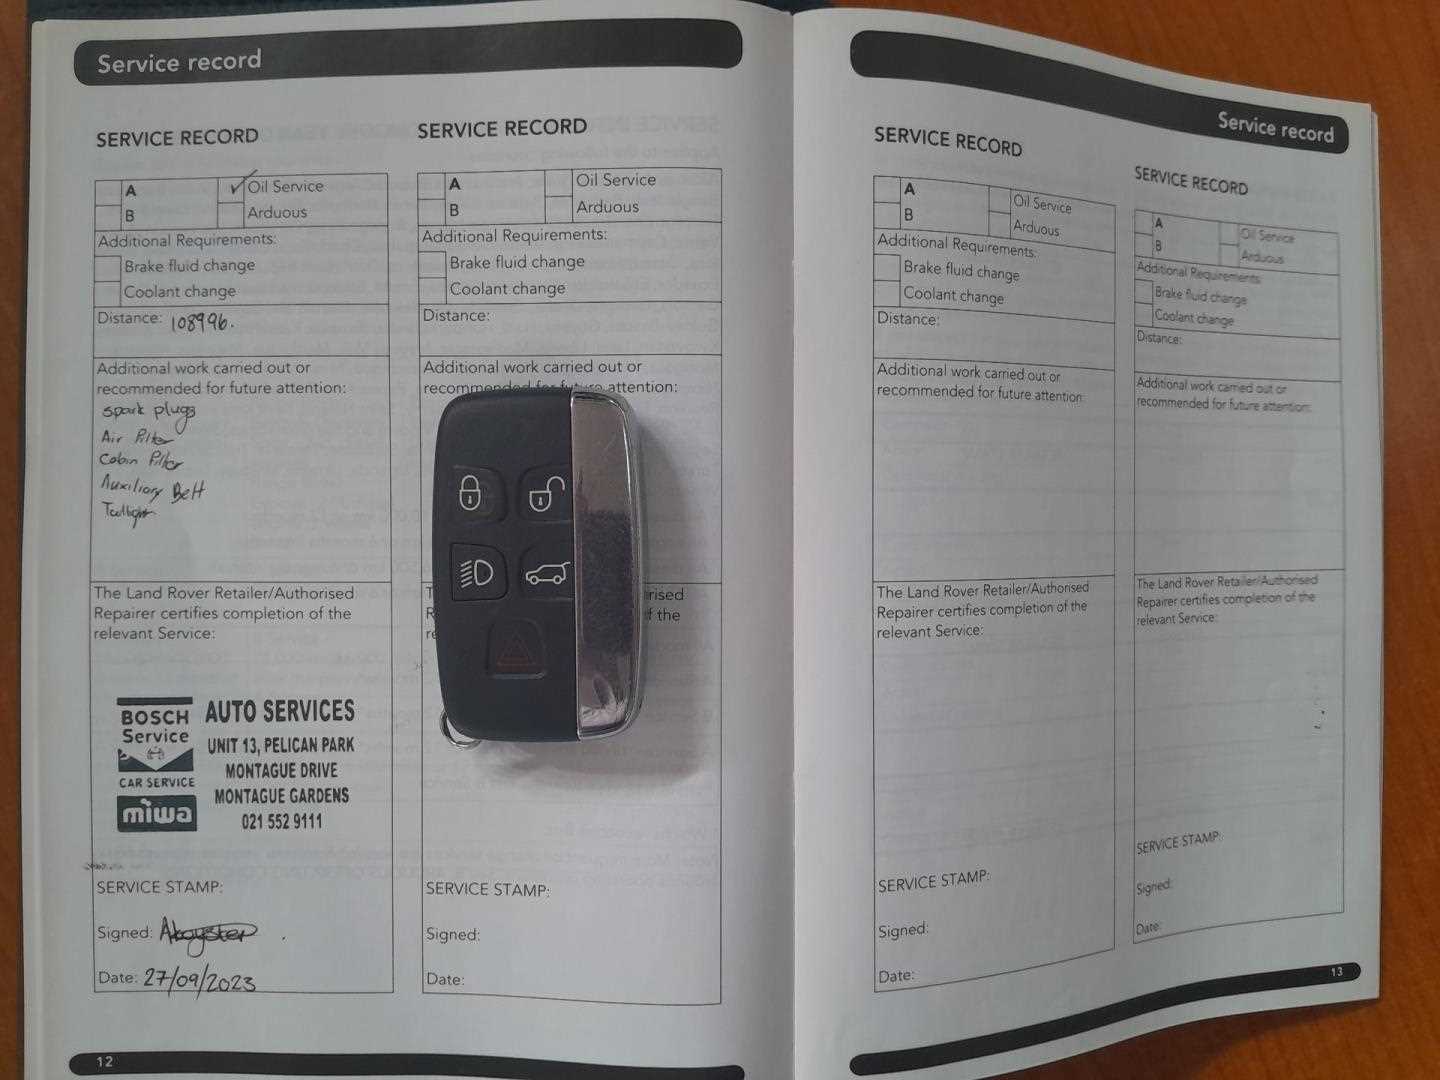 Service record
SERVICE RECORD
A
Oil Service
B
Arduous
Additional Requirements:
Brake fluid change
Coolant change
Distance: 108996.
Additional work carried out or
recommended for future attention:
Spark plugs
Air Filter
Cabin Filter
Auxiliary Belt
Taillight
The Land Rover Retailer/Authorised
Repairer certifies completion of the
relevant Service:
BOSCH
Service
CAR SERVICE
miwa
AUTO SERVICES
UNIT 13, PELICAN PARK
MONTAGUE DRIVE
MONTAGUE GARDENS
021 552 9111
SERVICE STAMP:
Signed:
Date: 27/09/2023
SERVICE RECORD
A
Oil Service
B
Arduous
Additional Requirements:
Brake fluid change
Coolant change
Distance:
Additional work carried out or
recommended for future attention:
SERVICE STAMP:
Signed:
Date:
12
Service record
SERVICE RECORD
A
Oil Service
B
Arduous
Additional Requirements:
Brake fluid change
Coolant change
Distance:
Additional work carried out or
recommended for future attention:
The Land Rover Retailer/Authorised
Repairer certifies completion of the
relevant Service:
SERVICE STAMP:
Signed:
Date:
SERVICE RECORD
A
Oil Service
B
Arduous
Additional Requirements:
Brake fluid change
Coolant change
Distance:
Additional work carried out or
recommended for future attention:
The Land Rover Retailer/Authorised
Repairer certifies completion of the
relevant Service:
SERVICE STAMP:
Signed:
Date:
13